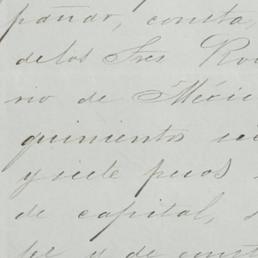 pañar, consta,
de los Sres Ro
rio de Méxic
quinientos
y siete pesos
de capital,